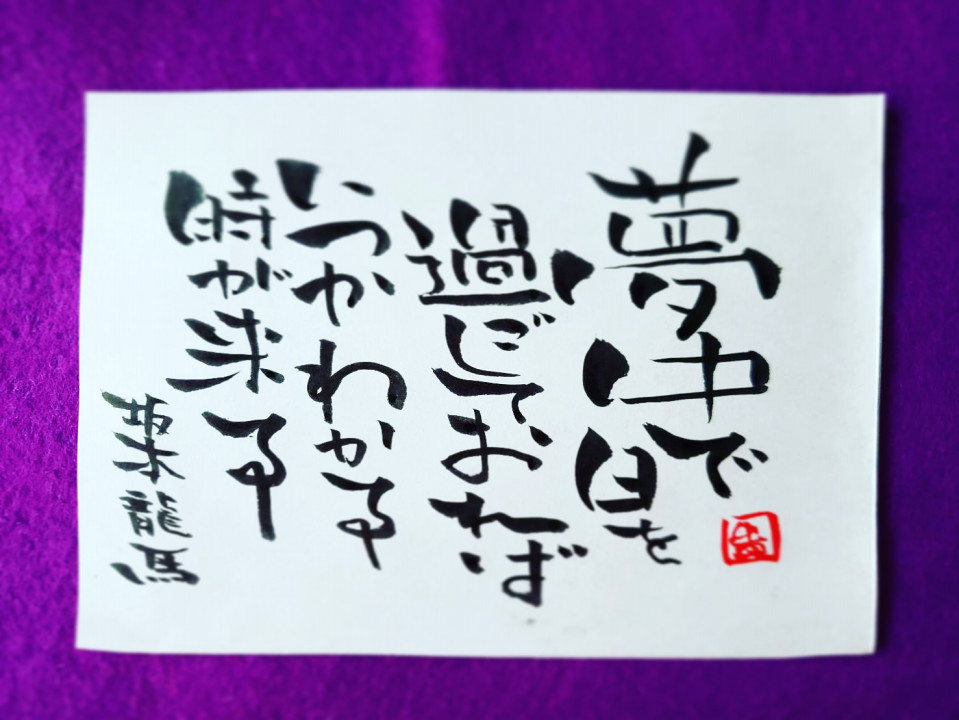 夢中で日を
過ごしておれば
いつかわかる
時が来る
坂本龍馬